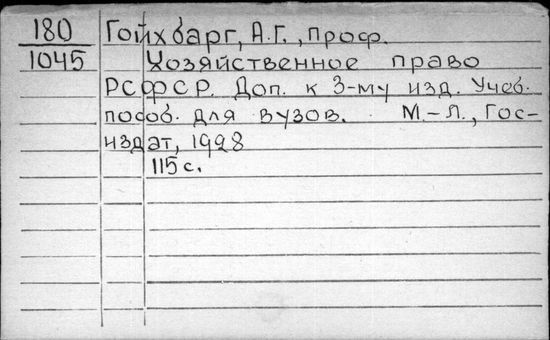 180 Гойхбарг, А.Г., проф.
1045 Хозяйственное право
РСФСР. Доп. к 3-му изд. Учеб.
пособ. для вузов. М.-Л., Гос-
издат, 1928
115 с.